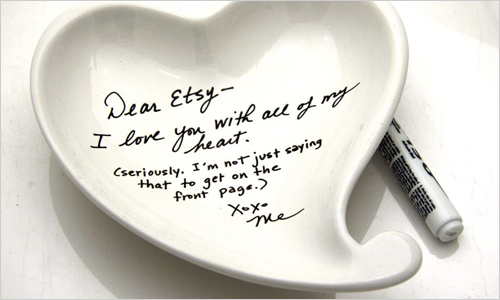 Dear Etsy—
I love you with all of my
heart.
(seriously. I'm not just saying
that to get on the
front page.)
xoxo
me